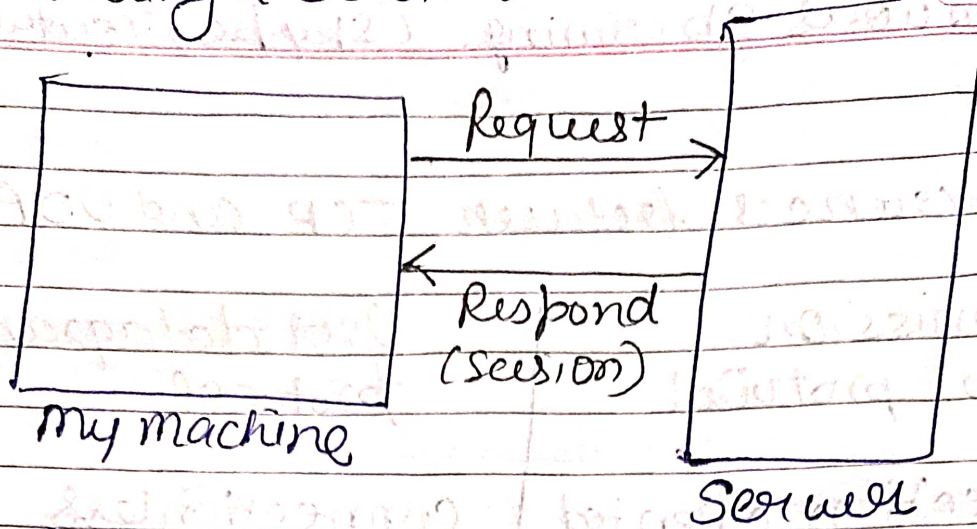 Request
Respond
(session)
My machine
Server